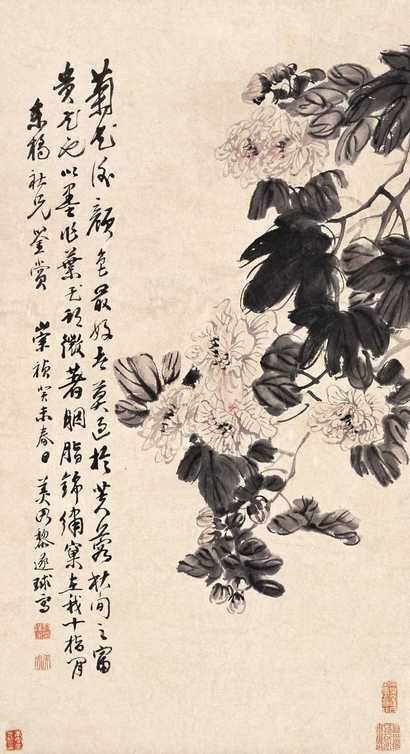 菊花後顏色最好者莫過於芙蓉秋間之富
貴花也以墨作葉花頭微著胭脂錦繡窠在我十指間
東橋社兄鑒賞 崇禎癸未春日美周黎遂球寫